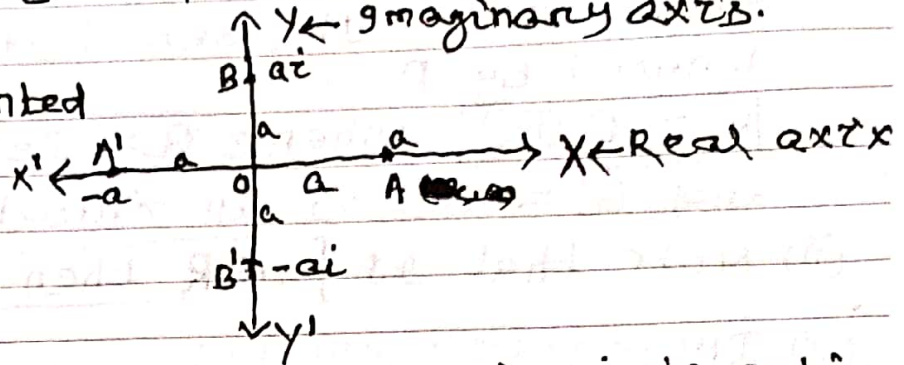 Y← Imaginary axis.
B ai
nted
a
X' A' a a X←Real axix
-a O a A
a
B' -ai
Y'